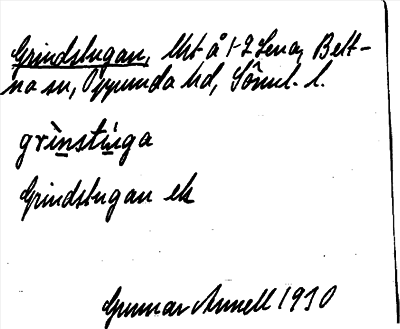 Grindstugan, lht å 1-2 Lena, Bett-
na sn, Oppunda hd, Söml. l.
grı̀nstu̇ga
Grindstugan ek
Gunnar Annell 1910